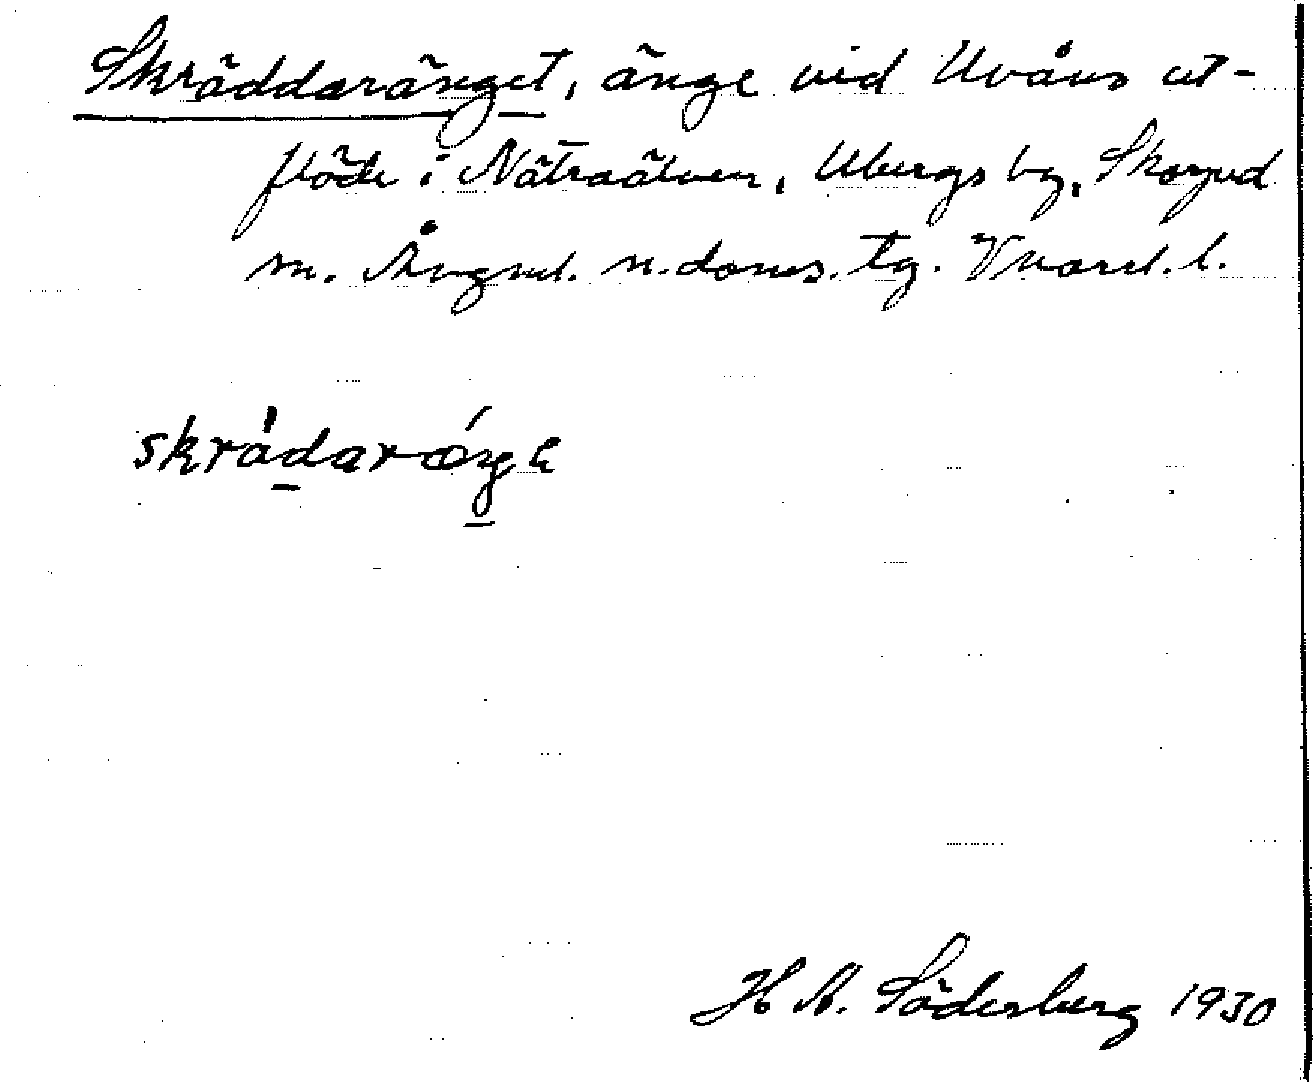 Skräddaränget, änge vid Uvåns ut-
flöde i Nätraälven, Ubergs by, Skorped
m. Ångml. n. doms. tg. V norrl. l.
skrådarǿŋge
H A. Söderberg 1930